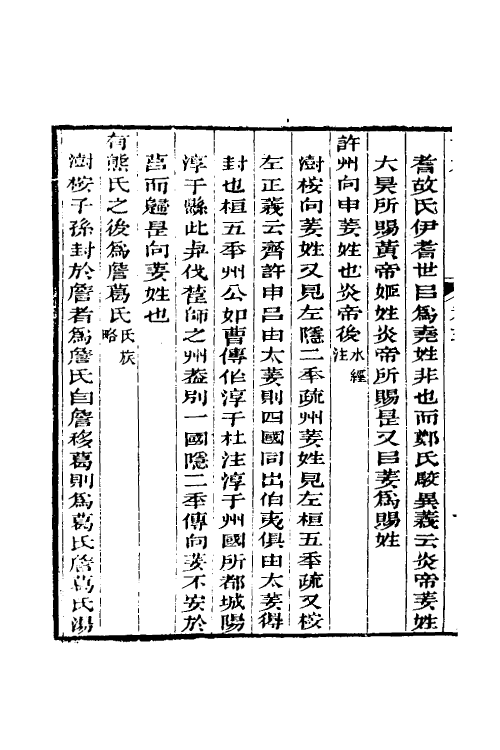 耆故氏伊耆世㠯爲堯姓非也而鄭氏駁異義云炎帝姜姓
大昊所賜黃帝姬姓炎帝所賜是又㠯姜爲賜姓
許州向申姜姓也炎帝後水經注
澍桉向姜姓又見左隱二年疏州姜姓見左桓五年疏又桉
左正義云齊許申呂由太姜則四國同出伯夷俱由太姜得
封也桓五年州公如曹傳作淳于杜注淳于州國所都城陽
淳于縣此與伐楚師之州葢別一國隱二年傳向姜不安於
莒而歸是向姜姓也
有熊氏之後爲詹葛氏氏族略
澍桉子孫封於詹者爲詹氏自詹移葛則爲葛氏詹葛氏湯